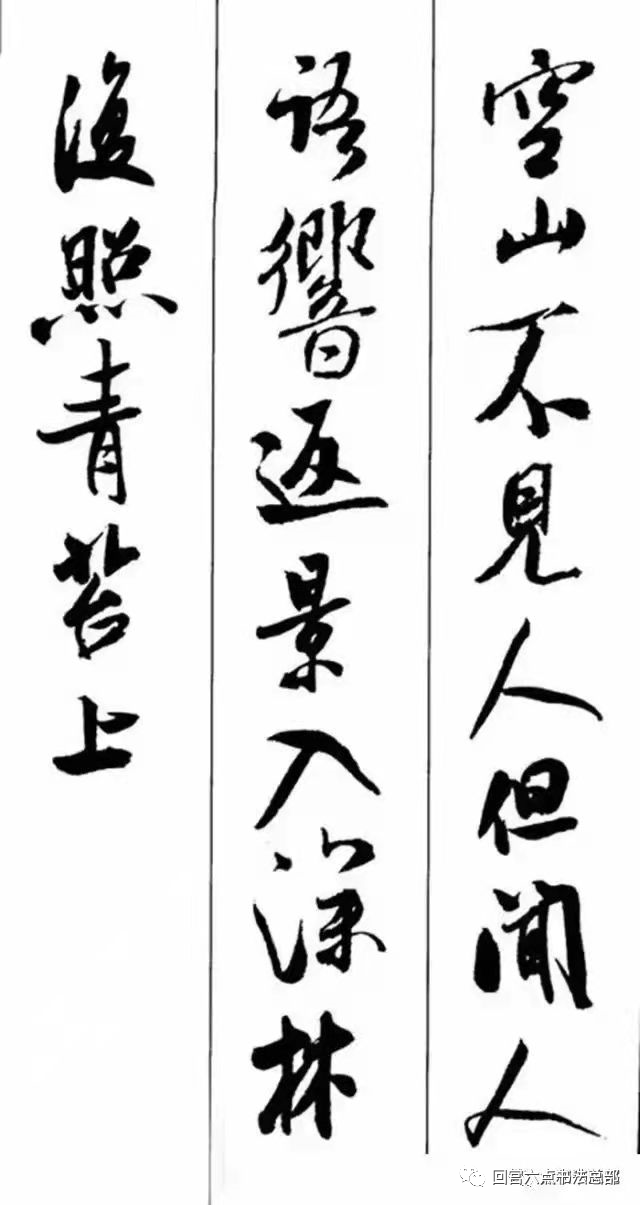 空山不見人但聞人
語響返景入深林
復照青苔上
回宫六点书法总部